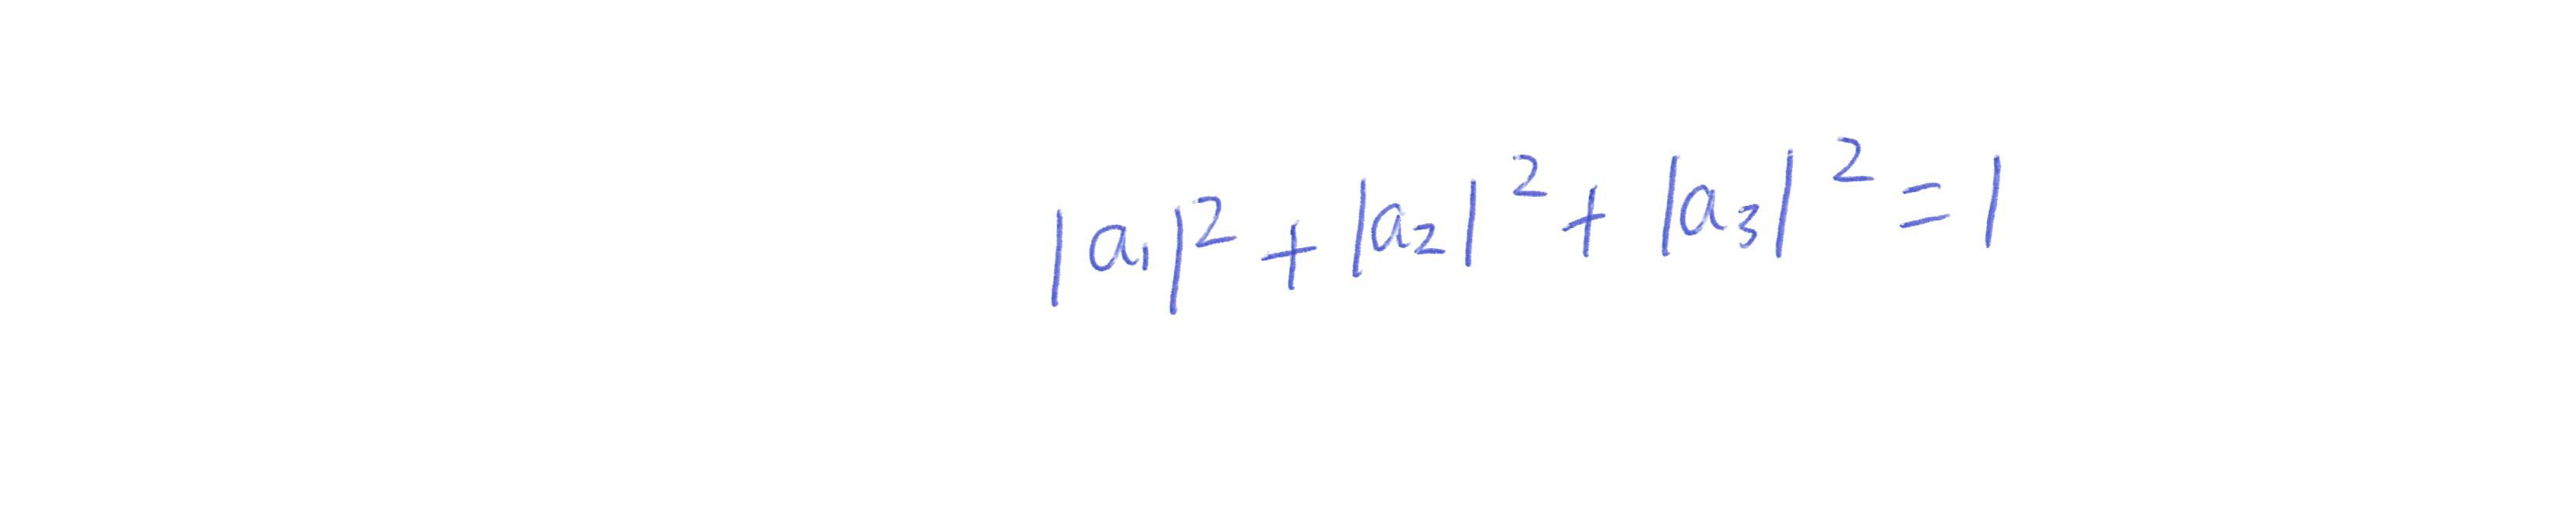 |a₁|² + |a₂|² + |a₃|² = 1